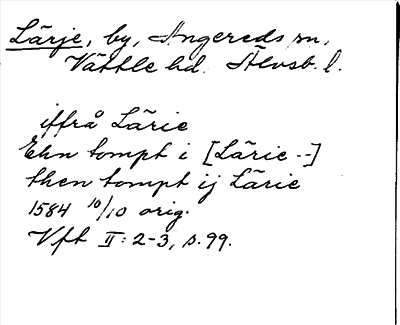 Lärje, by, Angereds sn,
Vättle hd. Älvsb. l.
iffrå Lärie
Ehn tompt i [Lärie --]
then tompt ij Lärie
1584 10/10 orig.
Vft II: 2-3, s. 99.